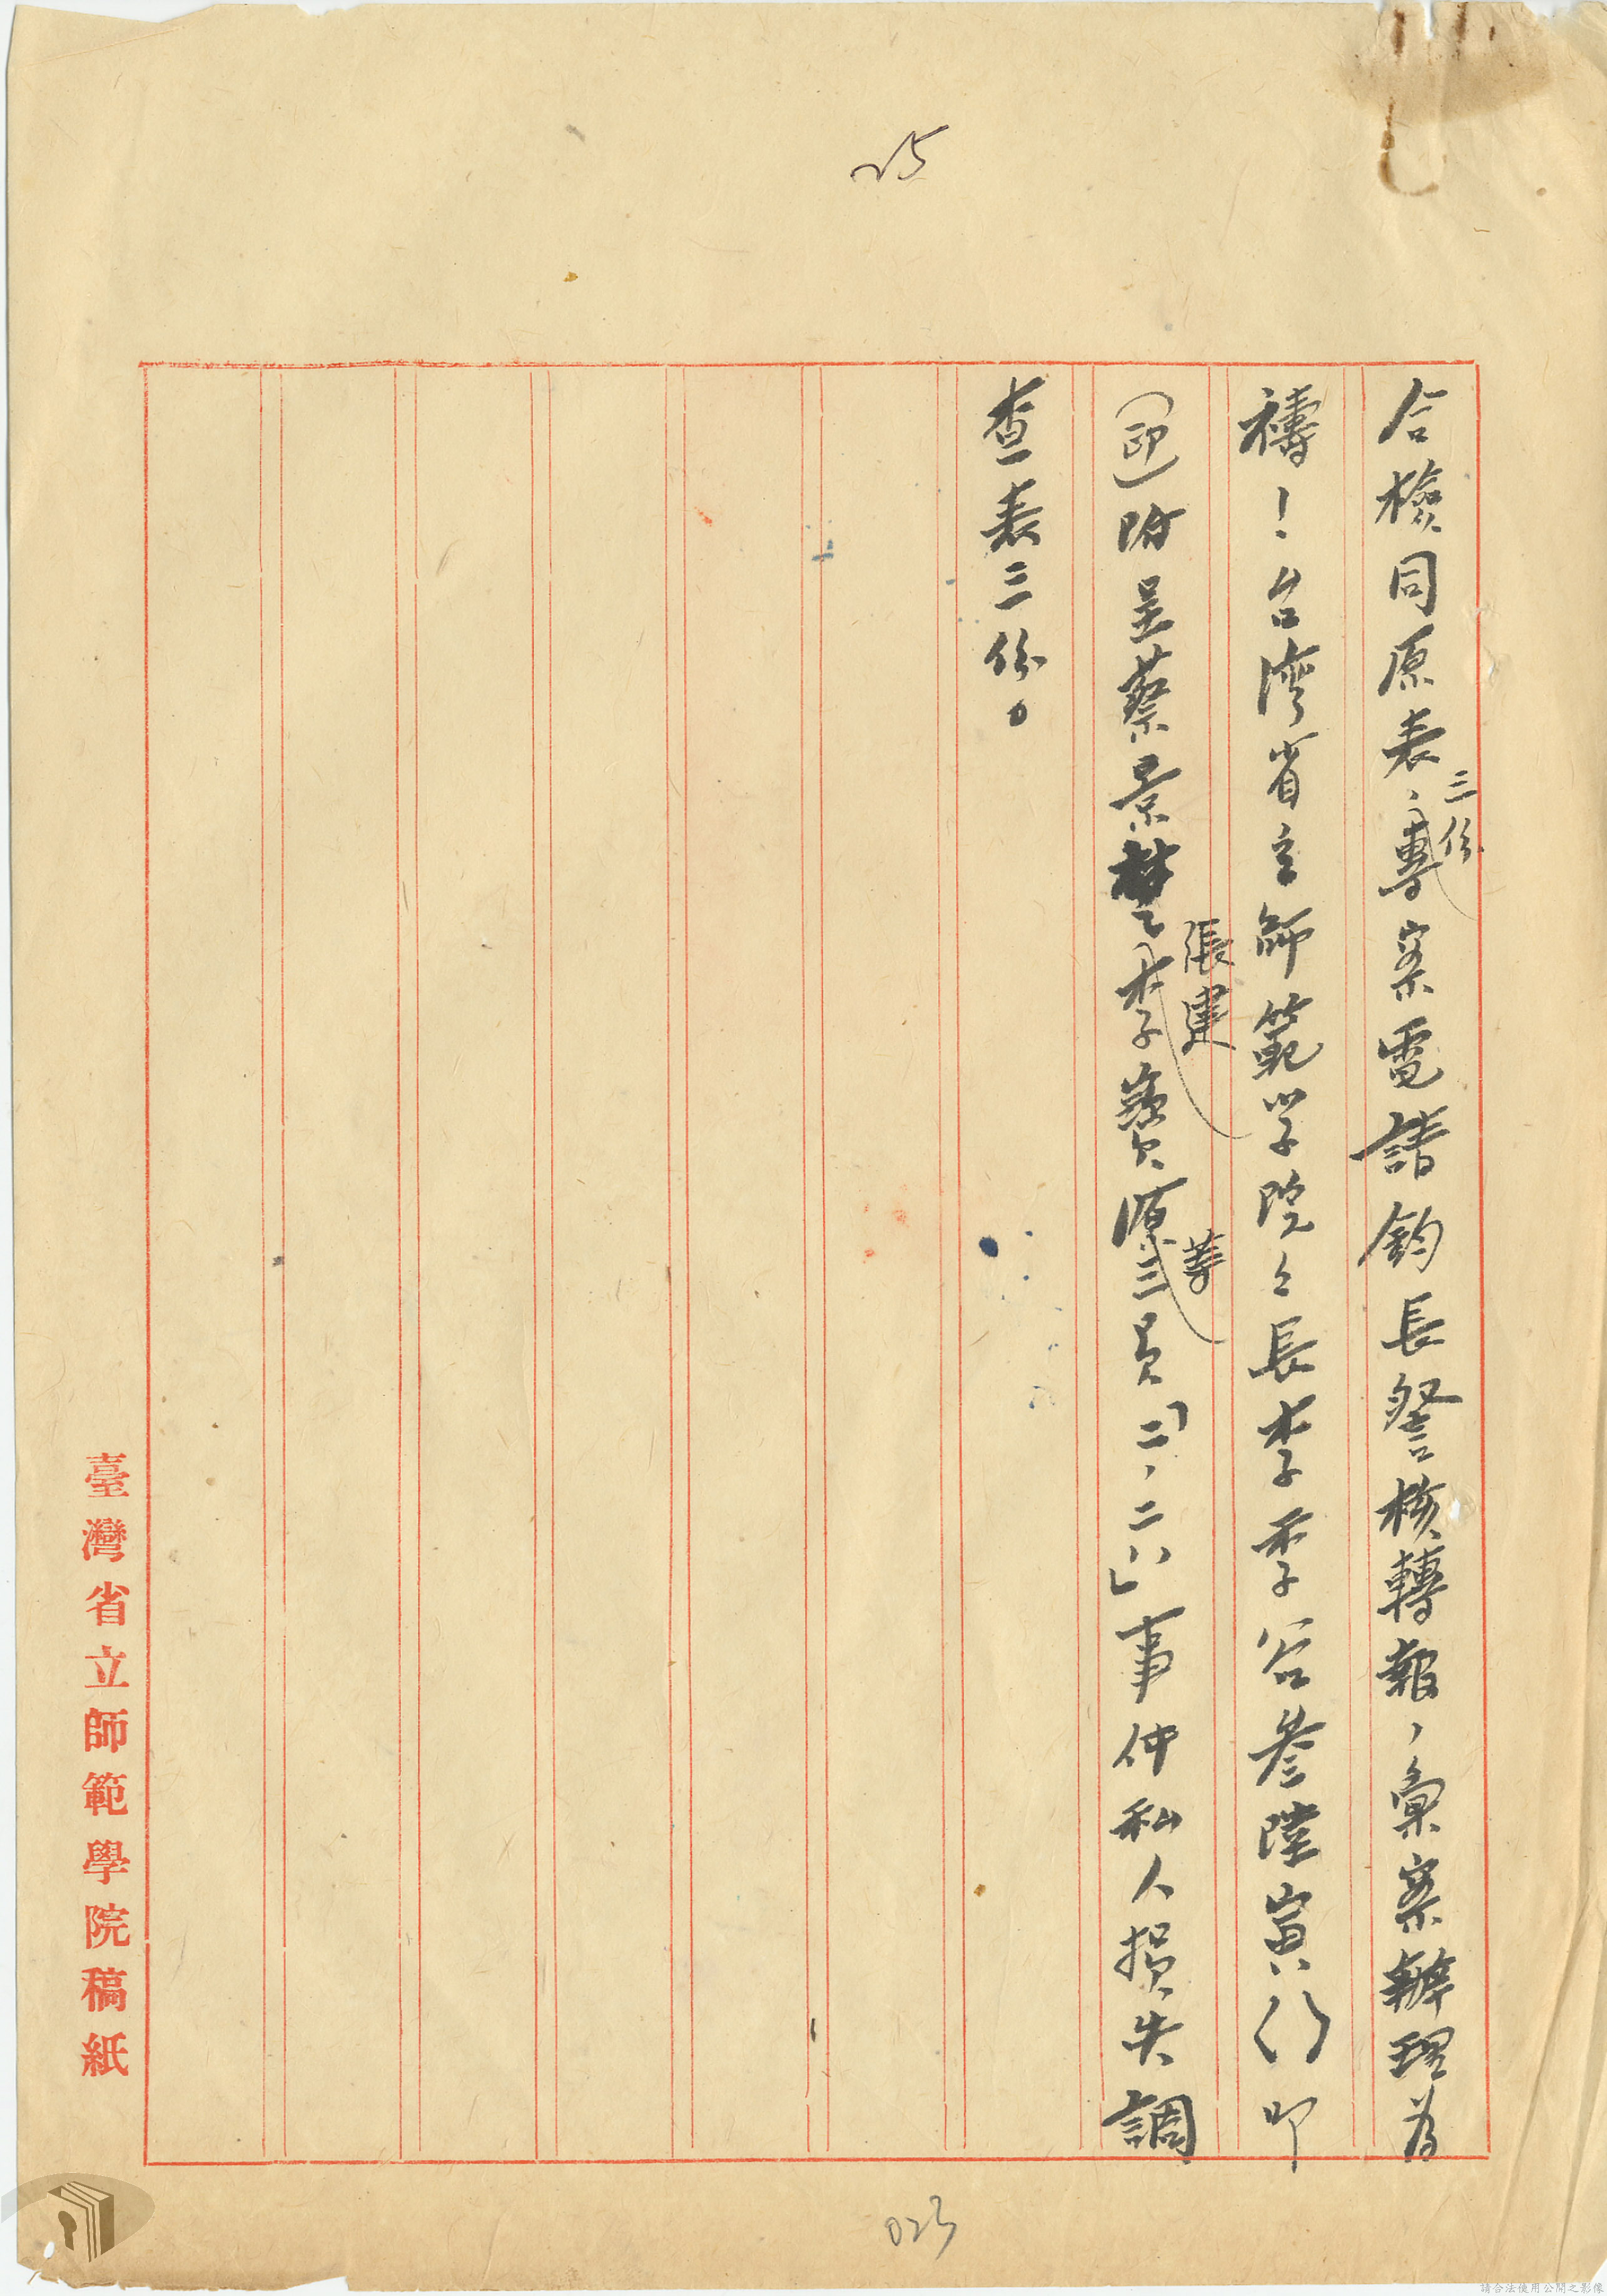 25
合檢同原表三份,專案電請鈞長詧核轉報,彙案辦理為
禱!台灣省立師範学院々長李季谷叁陸寅( )叩
(印)附呈蔡景 張建 李寶源等三員「二,二八」事件私人損失調
查表三份。
臺灣省立師範學院稿紙
023
請合法使用公開之影像